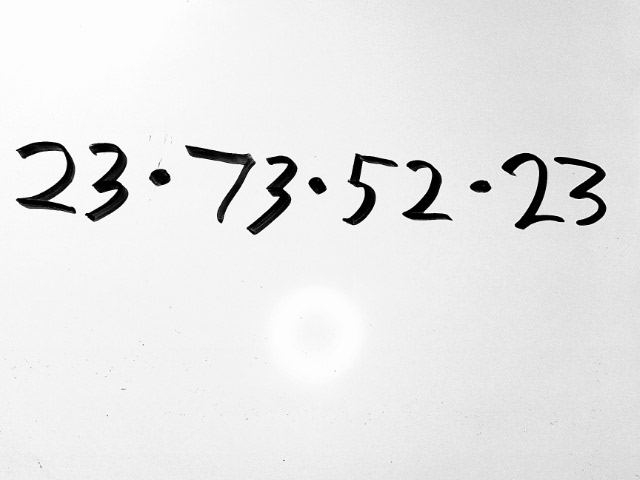 23·73·52·23